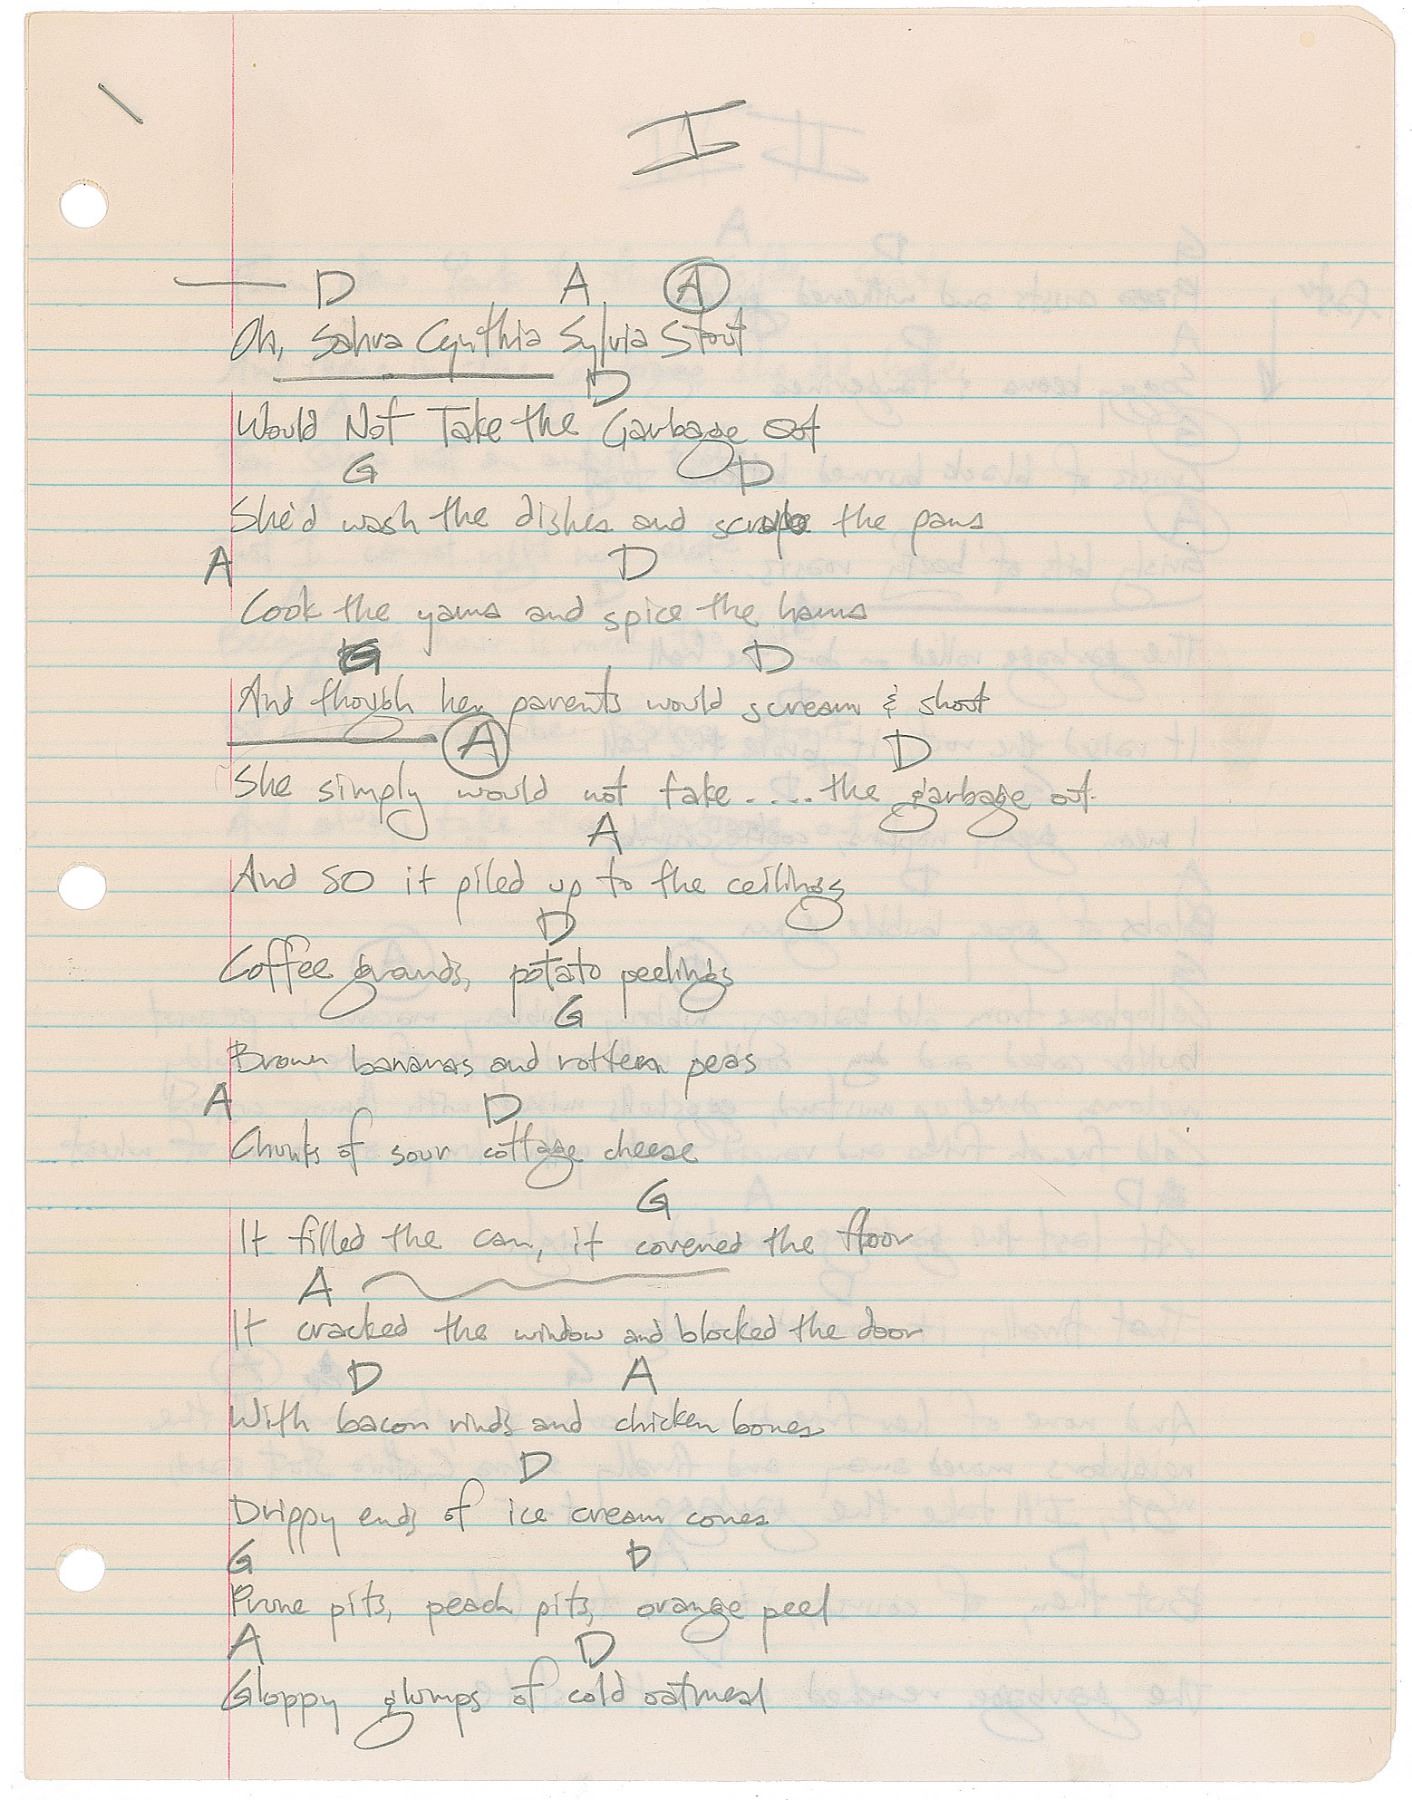 I
D A A
Oh, Sahra Cynthia Sylvia Stout
D
Would Not Take the Garbage Out
G D
She'd wash the dishes and scrape the pans
A D
Cook the yams and spice the hams
G D
And though her parents would scream & shout
A D
She simply would not take.....the garbage out.
A
And SO it piled up to the ceilings
D
Coffee grounds, potato peelings
G
Brown bananas and rotten peas
A D
Chunks of sour cottage cheese
G
It filled the can, it covered the floor
A
It cracked the window and blocked the door
D A
With bacon rinds and chicken bones
D
Drippy ends of ice cream cones
G D
Prune pits, peach pits, orange peel
A D
Gloppy glumps of cold oatmeal